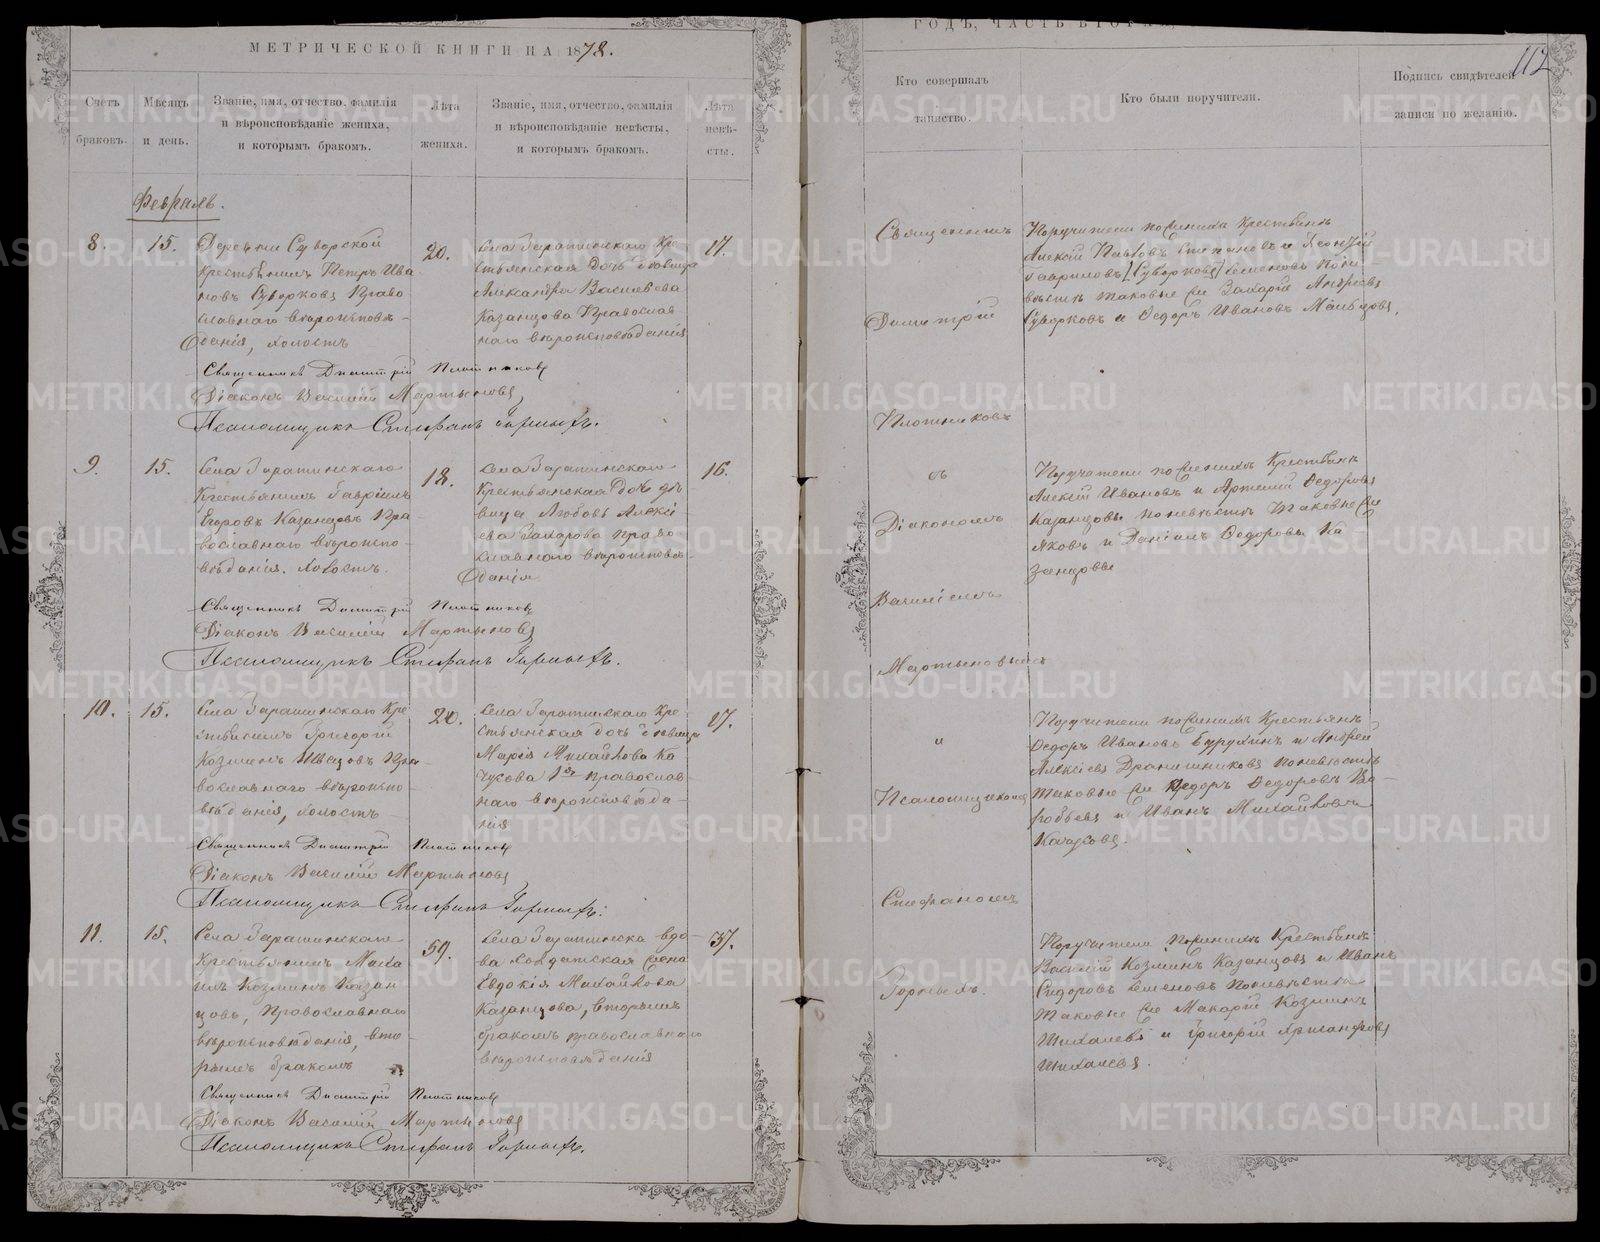 МЕТРИЧЕСКОЙ КНИГИ НА 1878.
Счетъ браковъ.
Мѣсяцъ и день.
Званіе, имя, отчество, фамилія
и вѣроисповѣданіе жениха,
и которымъ бракомъ.
Лѣта жениха.
Званіе, имя, отчество, фамилія
и вѣроисповѣданіе невѣсты,
и которымъ бракомъ.
Лѣта невѣ-
сты.
Февраль.
8.
15.
Деревни Суворской
крестьянинъ Петръ Ива
новъ Суворковъ Право
славнаго вѣроисповѣ-
данія, холостъ
20.
Села Зараминскаго Кре
стьянская дочь дѣвица
Александра Васильева
Казанцова Православ
наго вѣроисповѣданія
17.
Священникъ Димитрій Плотниковъ
Діаконъ Василій Мартыновъ
Псаломщикъ Стефанъ Горныхъ.
9.
15.
Села Зараминскаго
Крестьянинъ Гавріилъ
Егоровъ Казанцовъ Пра
вославнаго вѣроиспо-
вѣданія. Холостъ.
18.
Села Зараминскаго
Крестьянская дочь дѣ
вица Любовь Алексі
ева Захарова право
славнаго вѣроисповѣ
данія
16.
Священникъ Димитрій Плотниковъ
Діаконъ Василій Мартыновъ
Псаломщикъ Стефанъ Горныхъ.
10.
15.
Села Зараминскаго Кре
стьянинъ Григорій
Козминъ Швецовъ Пра
вославнаго вѣроиспо-
вѣданія, холостъ
20.
Села Зараминскаго Кре
стьянская дочь дѣвица
Марія Михайлова Ка
чусова православ
наго вѣроисповѣда-
нія
17.
Священникъ Димитрій Плотниковъ
Діаконъ Василій Мартыновъ
Псаломщикъ Стефанъ Горныхъ.
11.
15.
Села Зараминскаго
Крестьянинъ Миха
илъ Козминъ Казан
цовъ, Православнаго
вѣроисповѣданія, вто-
рымъ бракомъ
59.
Села Зараминска вдо-
ва солдатская жена
Евдокія Михайлова
Казанцова, вторымъ
бракомъ православнаго
вѣроисповѣданія
37.
Священникъ Димитрій Плотниковъ
Діаконъ Василій Мартыновъ
Псаломщикъ Стефанъ Горныхъ.
ГОДЪ, ЧАСТЬ ВТОРАЯ,
112
Кто совершалъ
таинство.
Кто были поручители.
Подпись свидѣтелей
записи по желанію.
Священникъ
Димитрій
Плотниковъ
съ
Діакономъ
Василіемъ
Мартыновымъ
и
Псаломщикомъ
Стефаномъ
Горныхъ.
Поручители по женихѣ Крестьяне
Алексій Павловъ Степановъ и Леонтій
Гавриловъ Суворковъ Семеновъ По не
вѣстѣ таковые же Захаръ Андреевъ
Суворковъ и Ѳедоръ Ивановъ Мальцовъ,
Поручители по женихѣ Крестьяне
Алексій Ивановъ и Артемій Ѳедоровъ
Казанцовы по невѣстѣ таковые же
Яковъ и Даніилъ Ѳедоровы Ка
занцовы
Поручители по женихѣ Крестьяне
Ѳедоръ Ивановъ Бурухинъ и Андрей
Алексіевъ Дранишниковъ по невѣстѣ
таковые же Ѳедоръ Ѳедоровъ Во-
робьевъ и Иванъ Михайловъ
Поручители по женихѣ Крестьяне
Василій Козминъ Казанцовъ и Иванъ
Сидоровъ Семеновъ По невѣстѣ
таковые же Макарій Козминъ
Шихалевъ и Григорій
Шихалевъ.